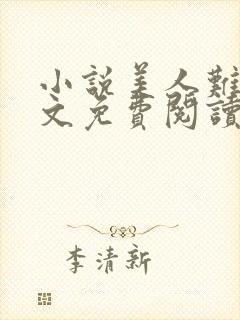 小說美人難
文免費閱讀
李清新